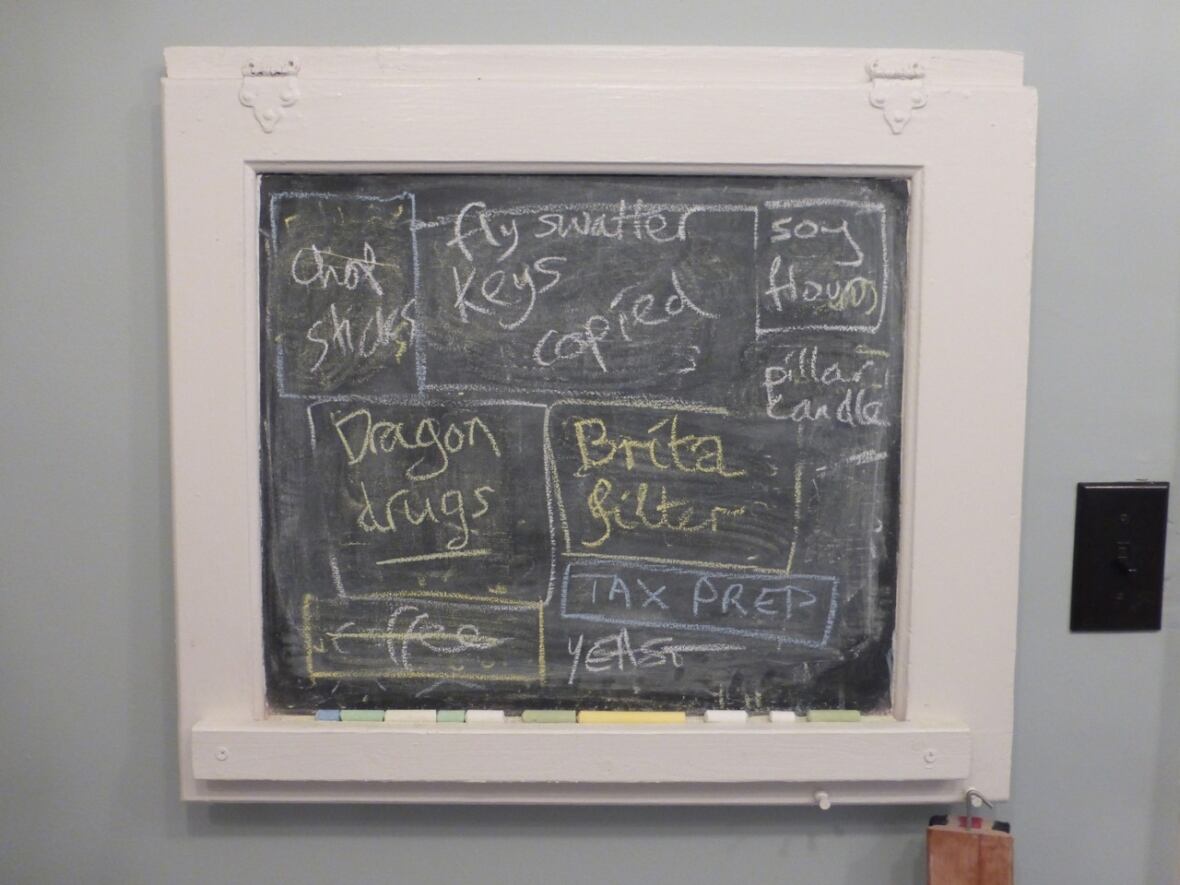 chop
sticks
fly swatter
keys
copied
soy
flour
pillar
candle
Dragon
drugs
Brita
filter
TAX PREP
coffee
YEAST